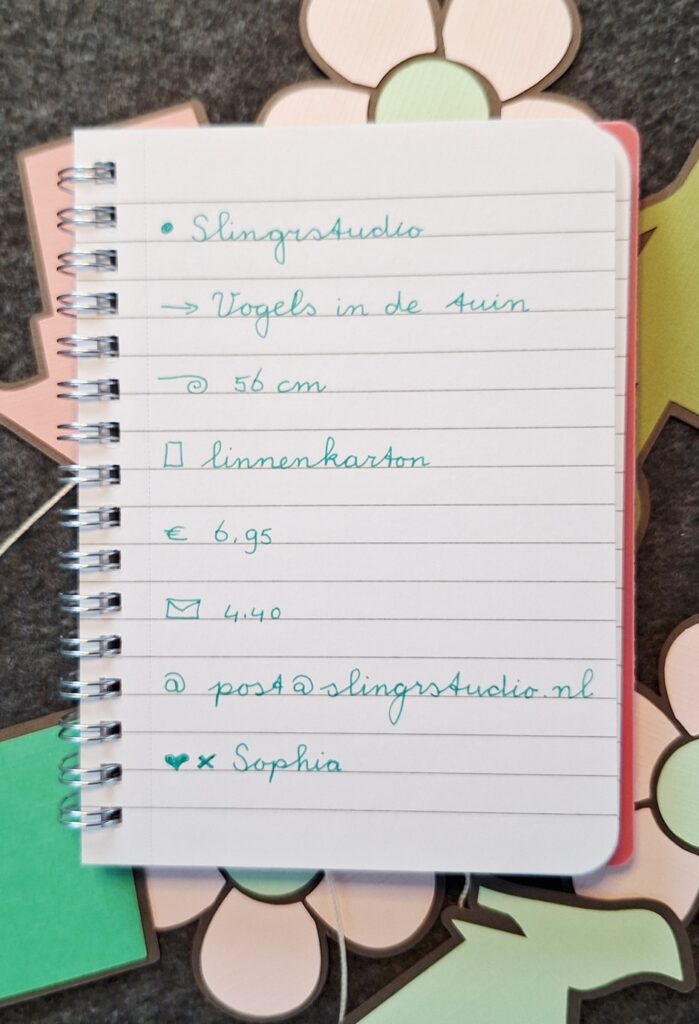 • Slingrstudio
→ Vogels in de tuin
56 cm
linnenkarton
€ 6.95
4.40
@ post@slingrstudio.nl
♥ x Sophia